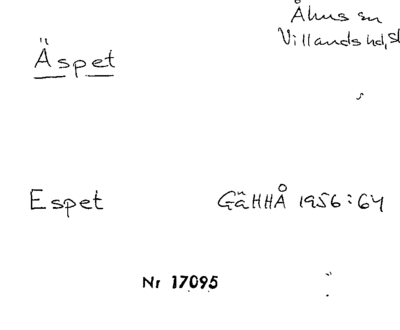 Åhus sn
Villands hd, Sk
Äspet
Espet GäHHÅ 1956:64
Nr 17095